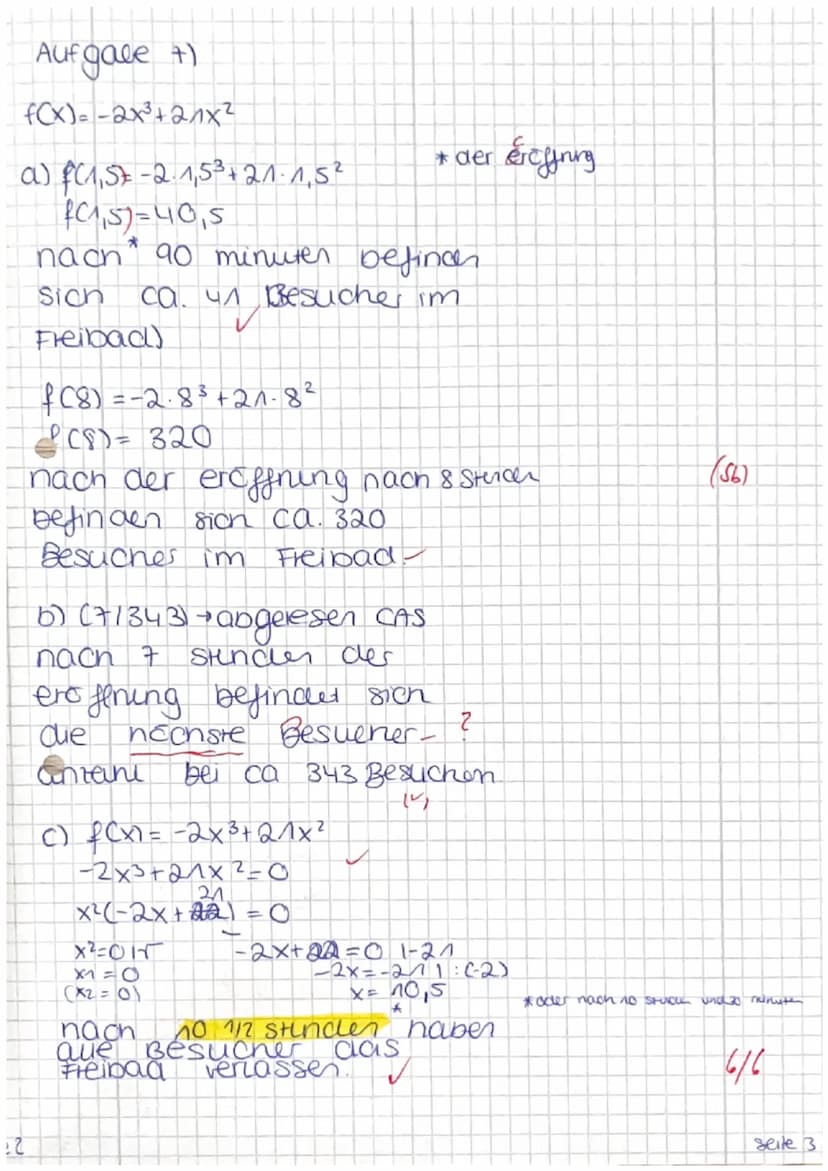 Aufgabe 7)
f(x)= -2x³+21x²
a) f(1,5)= -2·1,5³+21·1,5²
* der eröffnung
f(1,5)=40,5
nach* 90 minuten befinden
sich ca. 41 Besucher im
Freibad)
f(8) = -2·8³+21·8²
f(8)= 320
nach der eröffnung nach 8 Stunden
(Sb)
befinden sich ca. 320
Besucher im Freibad
b) (7/343) → abgelesen CAS
nach 7 stunden der
eröffnung befindet sich
die nöchste Besucher- ?
anzahl bei ca 343 Besuchen
(✓)
c) f(x) = -2x³+21x²
-2x³+21x²=0 ✓
21
x²(-2x+22) = 0
x²=0 |√ -2x+22=0 |-21
x1 = 0 -2x=-21 | :(-2)
(x2 = 0) x= 10,5
* oder nach 10 stunden und 30 minuten
nach 10 1/2 stunden* haben
alle Besucher das
Freibad verlassen. ✓
6/6
:2 Seite 3